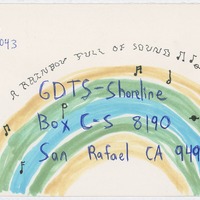 043
A RAINBOW FULL OF SOUND
GDTS-Shoreline
Box C-S 8190
San Rafael CA 949